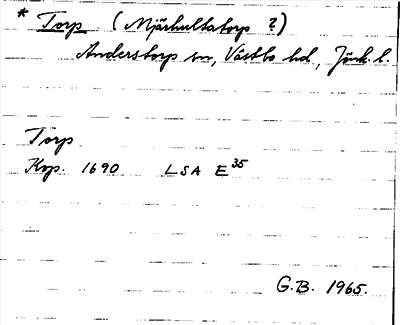 * Torp (Mjärhultatorp ?)
Anderstorp sn, Västbo hd, Jönk. l.
Torp
Kop. 1690 LSA E³⁵
G.B. 1965.